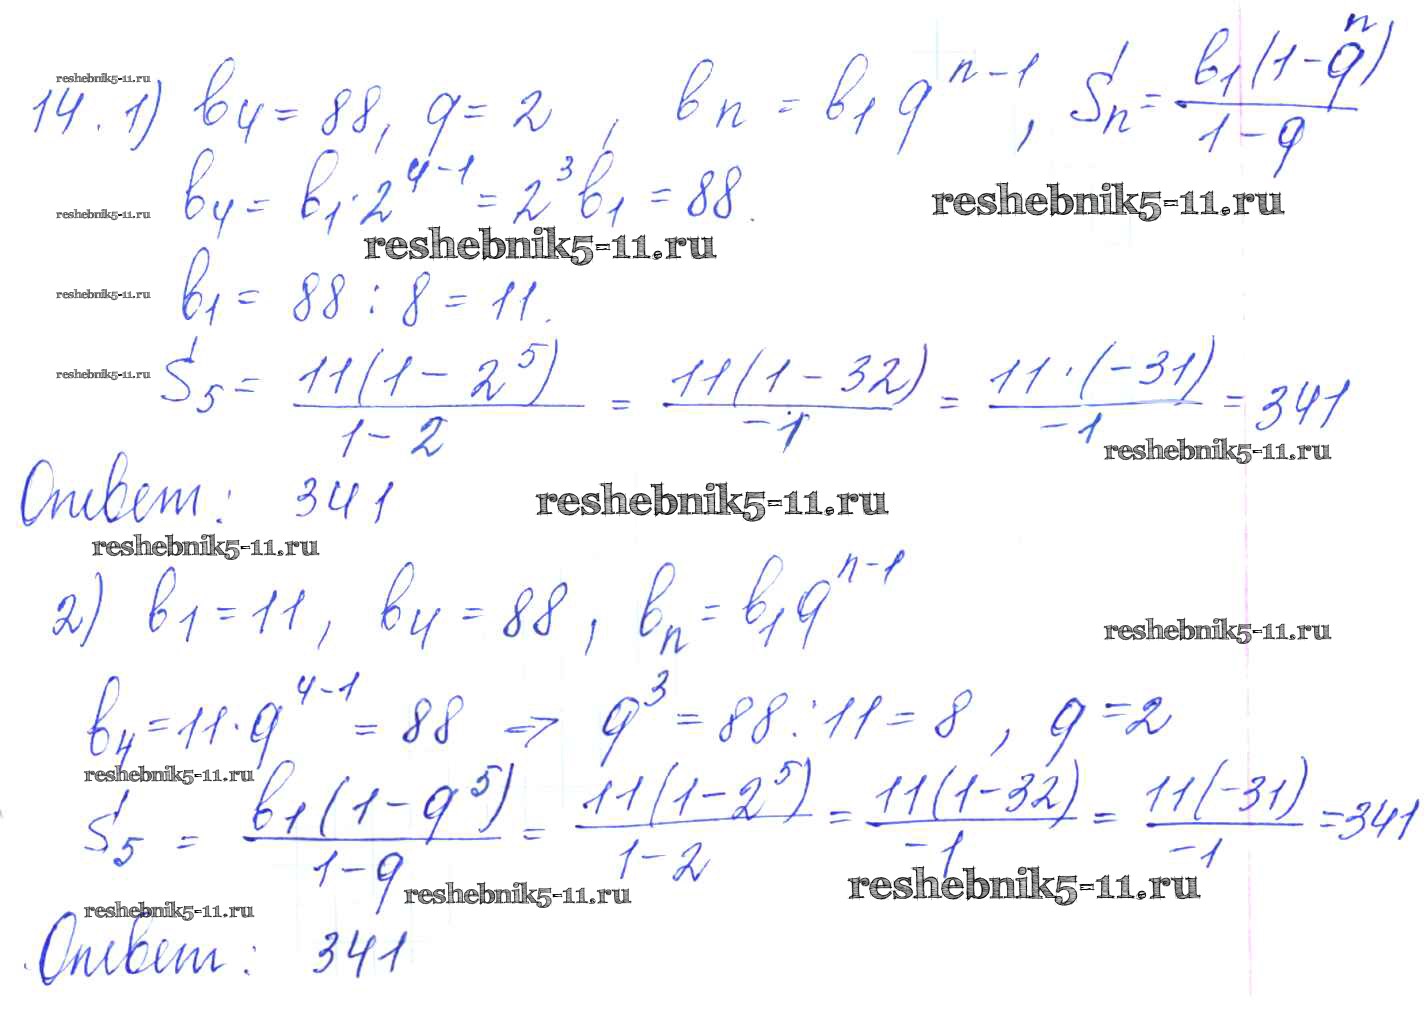 reshebnik5-11.ru
14. 1) b₄ = 88, q = 2, bₙ = b₁qⁿ⁻¹, Sₙ = b₁(1-qⁿ)/(1-q)
b₄ = b₁·2⁴⁻¹ = 2³b₁ = 88.
reshebnik5-11.ru
reshebnik5-11.ru
reshebnik5-11.ru
b₁ = 88 : 8 = 11.
reshebnik5-11.ru
S₅ = 11(1-2⁵)/(1-2) = 11(1-32)/(-1) = 11·(-31)/(-1) = 341
reshebnik5-11.ru
reshebnik5-11.ru
Ответ: 341
reshebnik5-11.ru
reshebnik5-11.ru
2) b₁ = 11, b₄ = 88, bₙ = b₁qⁿ⁻¹
reshebnik5-11.ru
b₄ = 11·q⁴⁻¹ = 88 => q³ = 88 : 11 = 8, q = 2
reshebnik5-11.ru
S₅ = b₁(1-q⁵)/(1-q) = 11(1-2⁵)/(1-2) = 11(1-32)/(-1) = 11(-31)/(-1) = 341
reshebnik5-11.ru
reshebnik5-11.ru
reshebnik5-11.ru
Ответ: 341